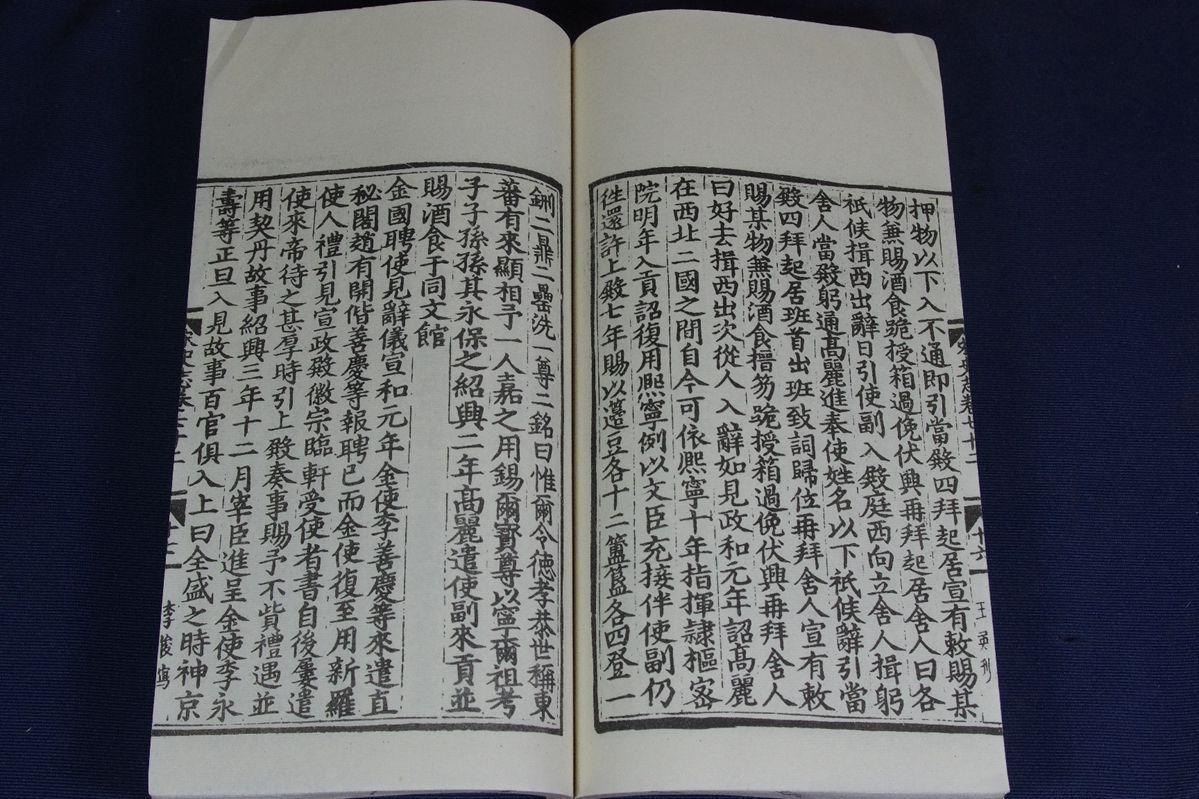 押物以下入不通即引當殿四拜起居宣有敕賜某
物無賜酒食跪授箱過俛伏興再拜起居舍人曰各
祗候揖西出辭日引使副入殿庭西向立舍人揖躬
舍人當殿躬通髙麗進奉使姓名以下祗候辭引當
殿四拜起居班首出班致詞歸位再拜舍人宣有敕
賜某物無賜酒食搢笏跪授箱過俛伏興再拜舍人
曰好去揖西出次從人入辭如見政和元年詔髙麗
在西北二國之間自今可依熙寧十年指揮隷樞宻
院明年入貢詔復用熙寧例以文臣充接伴使副仍
徃還許上殿七年賜以籩豆各十二簠簋各四登一
鉶二鼎二罍洗一尊二銘曰惟爾令徳孝恭世稱東
蕃有來顯相予一人嘉之用錫爾寳尊以寧爾祖考
子子孫孫其永保之紹興二年髙麗遣使副來貢並
賜酒食于同文館
金國聘使見辭儀宣和元年金使李善慶等來遣直
秘閣趙有開偕善慶等報聘已而金使復至用新羅
使人禮引見宣政殿徽宗臨軒受使者書自後屢遣
使來帝待之甚厚時引上殿奏事賜予不貲禮遇並
用契丹故事紹興三年十二月宰臣進呈金使李永
壽等正旦入見故事百官俱入上曰全盛之時神京
李